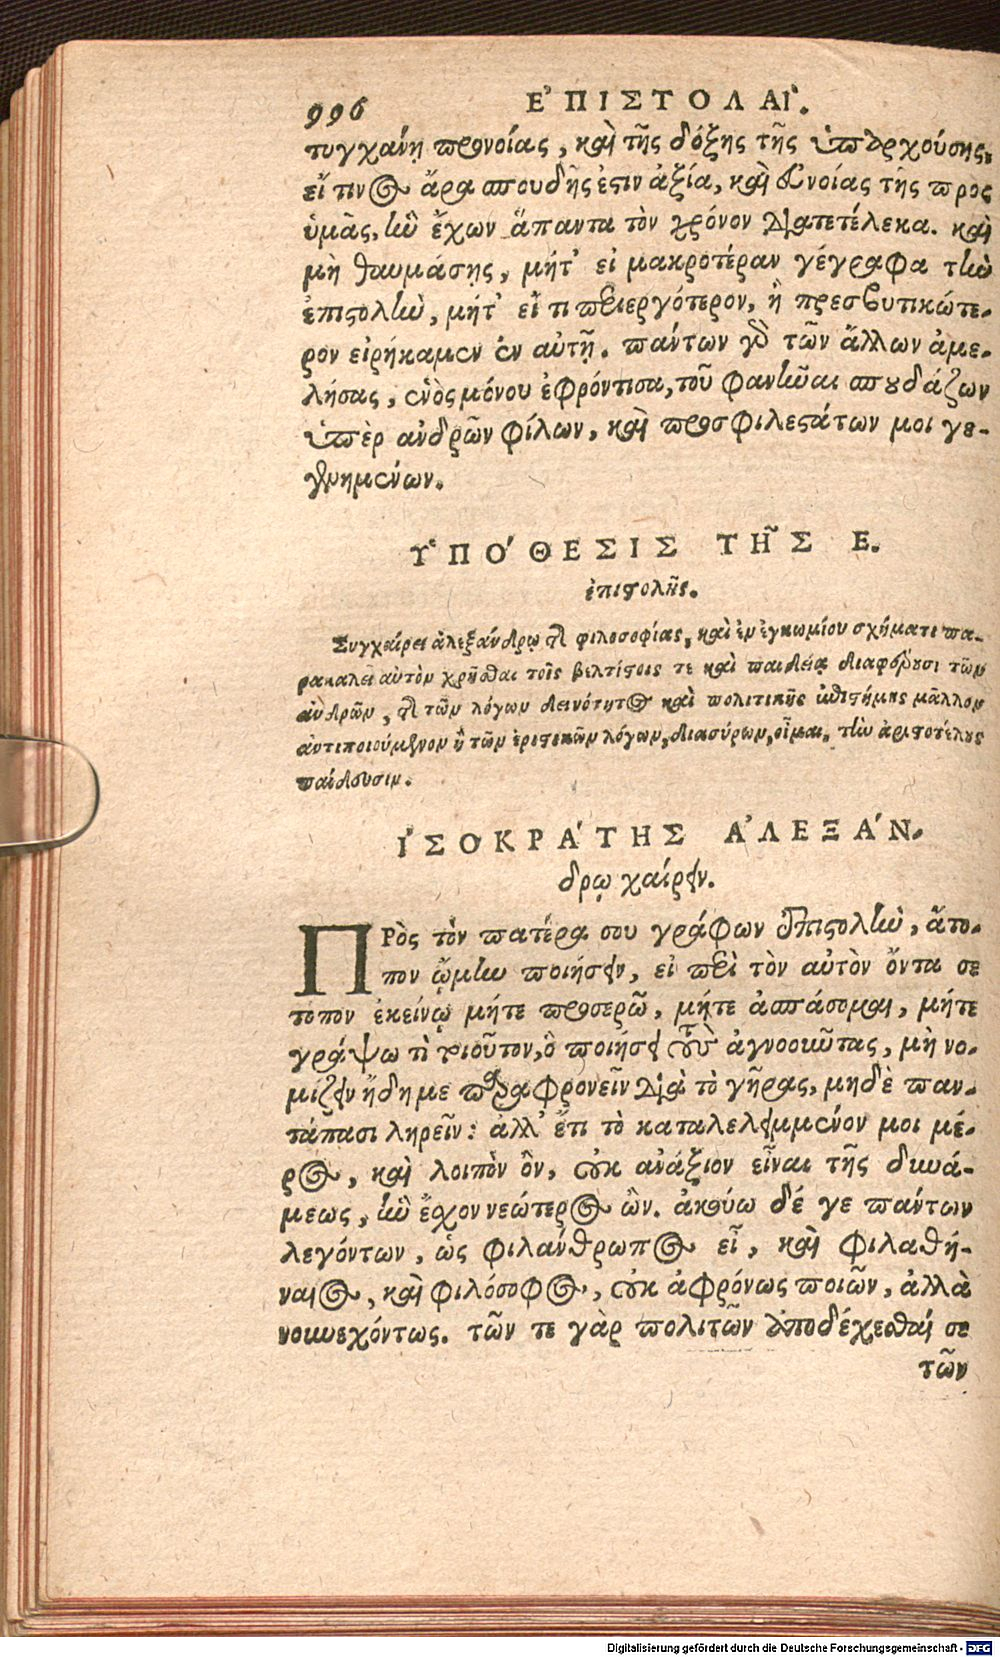 996
ΕʼΠΙΣΤΟΛΑἹ.
τυγχάνῃ προνοίας, καὶ τῆς δόξης τῆς ὑπαρχούσης,
εἴ τινος ἄρα σπουδῆς ἐστιν ἀξία, καὶ εὐνοίας τῆς προς
ὑμᾶς, ἣν ἔχων ἅπαντα τὸν χρόνον διατετέλεκα. καὶ
μὴ θαυμάσῃς, μήτ' εἰ μακροτέραν γέγραφα τὴν
ἐπιστολὴν, μήτ' εἴ τι περιεργότερον, ἢ πρεσβυτικώτε-
ρον εἰρήκαμεν ἐν αὐτῇ. πάντων γὰρ τῶν ἄλλων ἀμε-
λήσας, ἑνὸς μόνου ἐφρόντισα, τοῦ φανῆναι σπουδάζων
ὑπὲρ ἀνδρῶν φίλων, καὶ προσφιλεστάτων μοι γε-
γενημένων.
ΥʽΠΟʹΘΕΣΙΣ ΤΗ͂Σ Ε.
ἐπιστολῆς.
Συγχαίρει ἀλεξάνδρῳ τῆς φιλοσοφίας, καὶ ἐν ἐγκωμίου σχήματι πα-
ρακαλεῖ αὐτὸν χρῆσθαι τοῖς βελτίστοις τε καὶ παιδείᾳ διαφέρουσι τῶν
ἀνδρῶν, τῆς τῶν λόγων δεινότητος καὶ πολιτικῆς ἐπιστήμης μᾶλλον
ἀντιποιούμενον ἢ τῶν ἐριστικῶν λόγων, διασύρων, οἶμαι, τὴν ἀριστοτέλους
παίδευσιν.
ΙʼΣΟΚΡΑʹΤΗΣ ΑʼΛΕΞΑʹΝ-
δρῳ χαίρειν.
ΠΡὸς τὸν πατέρα σου γράφων ἐπιστολὴν, ἄτο-
πον ᾤμην ποιήσειν, εἰ περὶ τὸν αὐτὸν ὄντα σε
τόπον ἐκείνῳ μήτε προσερῶ, μήτε ἀσπάσομαι, μήτε
γράψω τὶ τοιοῦτον, ὃ ποιήσει τοὺς ἀγνοοῦντας, μὴ νο-
μίζειν ἤδη με παραφρονεῖν διὰ τὸ γῆρας, μηδὲ παν-
τάπασι ληρεῖν: ἀλλ' ἔτι τὸ καταλελειμμένον μοι μέ-
ρος, καὶ λοιπὸν ὂν, οὐκ ἀνάξιον εἶναι τῆς δυνά-
μεως, ἣν ἔχον νεώτερος ὢν. ἀκούω δέ γε πάντων
λεγόντων, ὡς φιλάνθρωπος εἶ, καὶ φιλαθή-
ναιος, καὶ φιλόσοφος, οὐκ ἀφρόνως ποιῶν, ἀλλὰ
νουνεχόντως. τῶν τε γὰρ πολιτῶν ἀποδέχεσθαί σε
τῶν
Digitalisierung gefördert durch die Deutsche Forschungsgemeinschaft - DFG